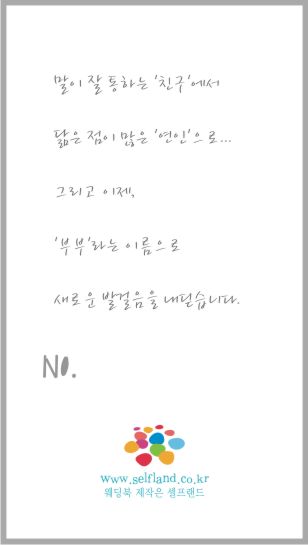 말이 잘 통하는 '친구'에서
닮은 점이 많은 '연인'으로...
그리고 이제,
'부부'라는 이름으로
새로운 발걸음을 내딛습니다.
NO.
www.selfland.co.kr
웨딩북 제작은 셀프랜드